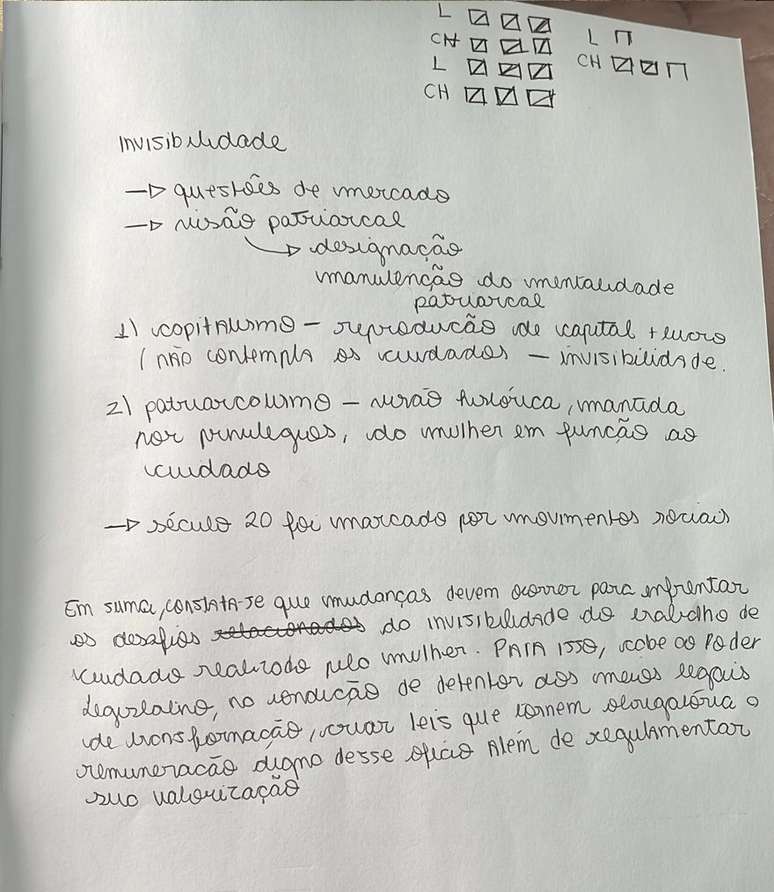 L
CH
L
CH
L
CH
Invisibilidade
→ questões de mercado
→ visão patriarcal
→ designação
manutenção da mentalidade
patriarcal
1) capitalismo - reprodução de capital + lucro
(não contempla os cuidados - invisibilidade.
2) patriarcalismo - visão histórica, mantida
por privilégios, da mulher em função ao
cuidado
→ século 20 foi marcado por movimentos sociais
Em suma, constata-se que mudanças devem ocorrer para enfrentar
os desafios relacionados da invisibilidade do trabalho de
cuidado realizado pela mulher. Para isso, cabe ao Poder
Legislativo, na condução de detentor dos meios legais
de transformação, criar leis que tornem obrigatória a
remuneração digna desse ofício além de regulamentar
sua valorização